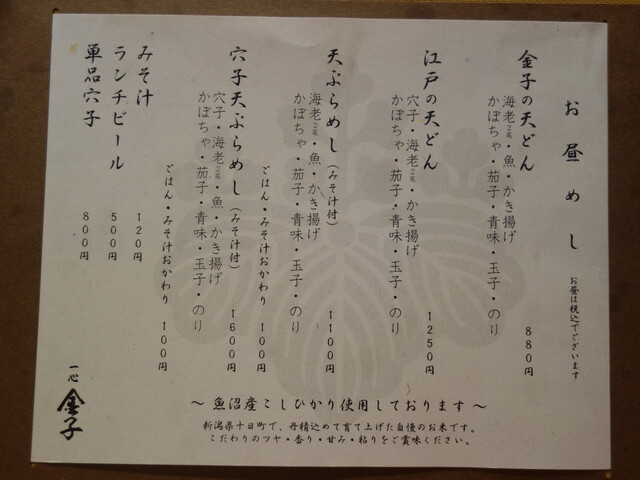 お昼めし
お昼は税込でございます
金子の天どん
880円
海老2尾・魚・かき揚げ
かぼちゃ・茄子・青味・玉子・のり
江戸の天どん
1250円
穴子・海老2尾・かき揚げ
かぼちゃ・茄子・青味・玉子・のり
天ぷらめし(みそ汁付)
1100円
海老2尾・魚・かき揚げ
かぼちゃ・茄子・青味・玉子・のり
ごはん・みそ汁おかわり 100円
穴子天ぷらめし(みそ汁付)
1600円
穴子・海老2尾・魚・かき揚げ
かぼちゃ・茄子・青味・玉子・のり
ごはん・みそ汁おかわり 100円
みそ汁 120円
ランチビール 500円
単品穴子 800円
～魚沼産こしひかり使用しております～
新潟県十日町で、丹精込めて育て上げた自慢のお米です。
こだわりのツヤ・香り・甘み・粘りをご賞味ください。
一心
金子